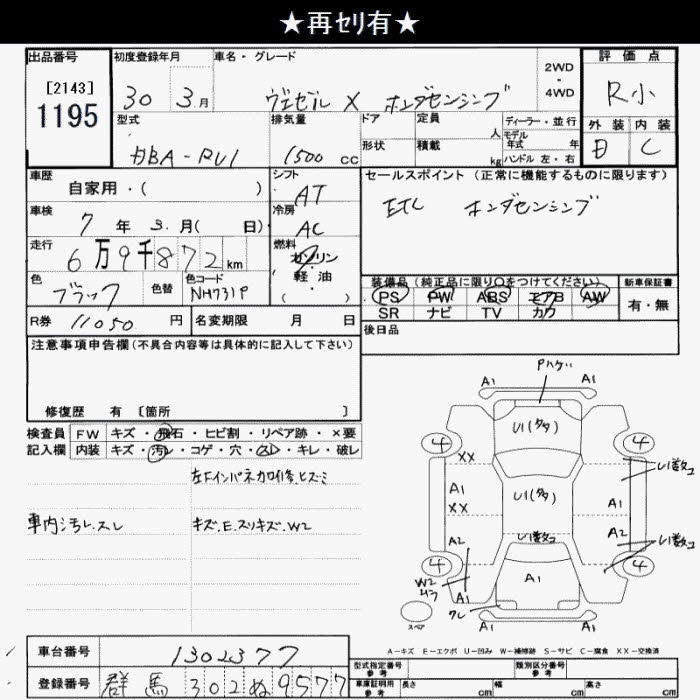 ★再ｾﾘ有★
出品番号
[2143]
1195
初度登録年月
30 3月
車名・グレード
ヴェゼル X ホンダセンシング
2WD
・
4WD
評価点
R小
外装 内装
D C
型式
DBA-RU1
排気量
1500 cc
ドア
形状
定員
人
積載
kg
ディーラー・並行
モデル
年式 年
ハンドル 左・右
車歴
自家用・( )
シフト
AT
セールスポイント (正常に機能するものに限ります)
ETC ホンダセンシング
車検
7年 3月( 日)
冷房
AC
走行
6万9千872km
燃料
ガソリン
軽・油
( )
色
ブラック
色替
色コード
NH731P
装備品(純正品に限り○をつけてください)
PS PW ABS エアB AW
SR ナビ TV カワ
新車保証書
有・無
R券 11050 円
名変期限 月 日
後日品
注意事項申告欄(不具合内容等は具体的に記入して下さい)
修復歴 有 [箇所 ]
検査員
記入欄
FW キズ・飛石・ヒビ割・リペア跡・×要
内装 キズ・汚レ・コゲ・穴・スレ・キレ・破レ
左Fインパネカロイ修、ヒズミ
車内汚レ、スレ
キズ、E、スリキズ、W2
Pハゲ
A1 A1
U1(タタ)
4 4
XX
U1数コ
A1 U1(タタ) A1
XX
A2 U1数コ A2 U1数コ
4 4
W2
A1
A1 A1
クレ
A1
スペア
A-キズ E-エクボ U-凹み W-補修跡 S-サビ C-腐食 XX-交換済
車台番号
1302377
登録番号
群馬 302 ぬ 9577
型式指定番号
参考
類別区分番号
参考
車庫証明用
参考
長さ cm
幅 cm
高さ cm